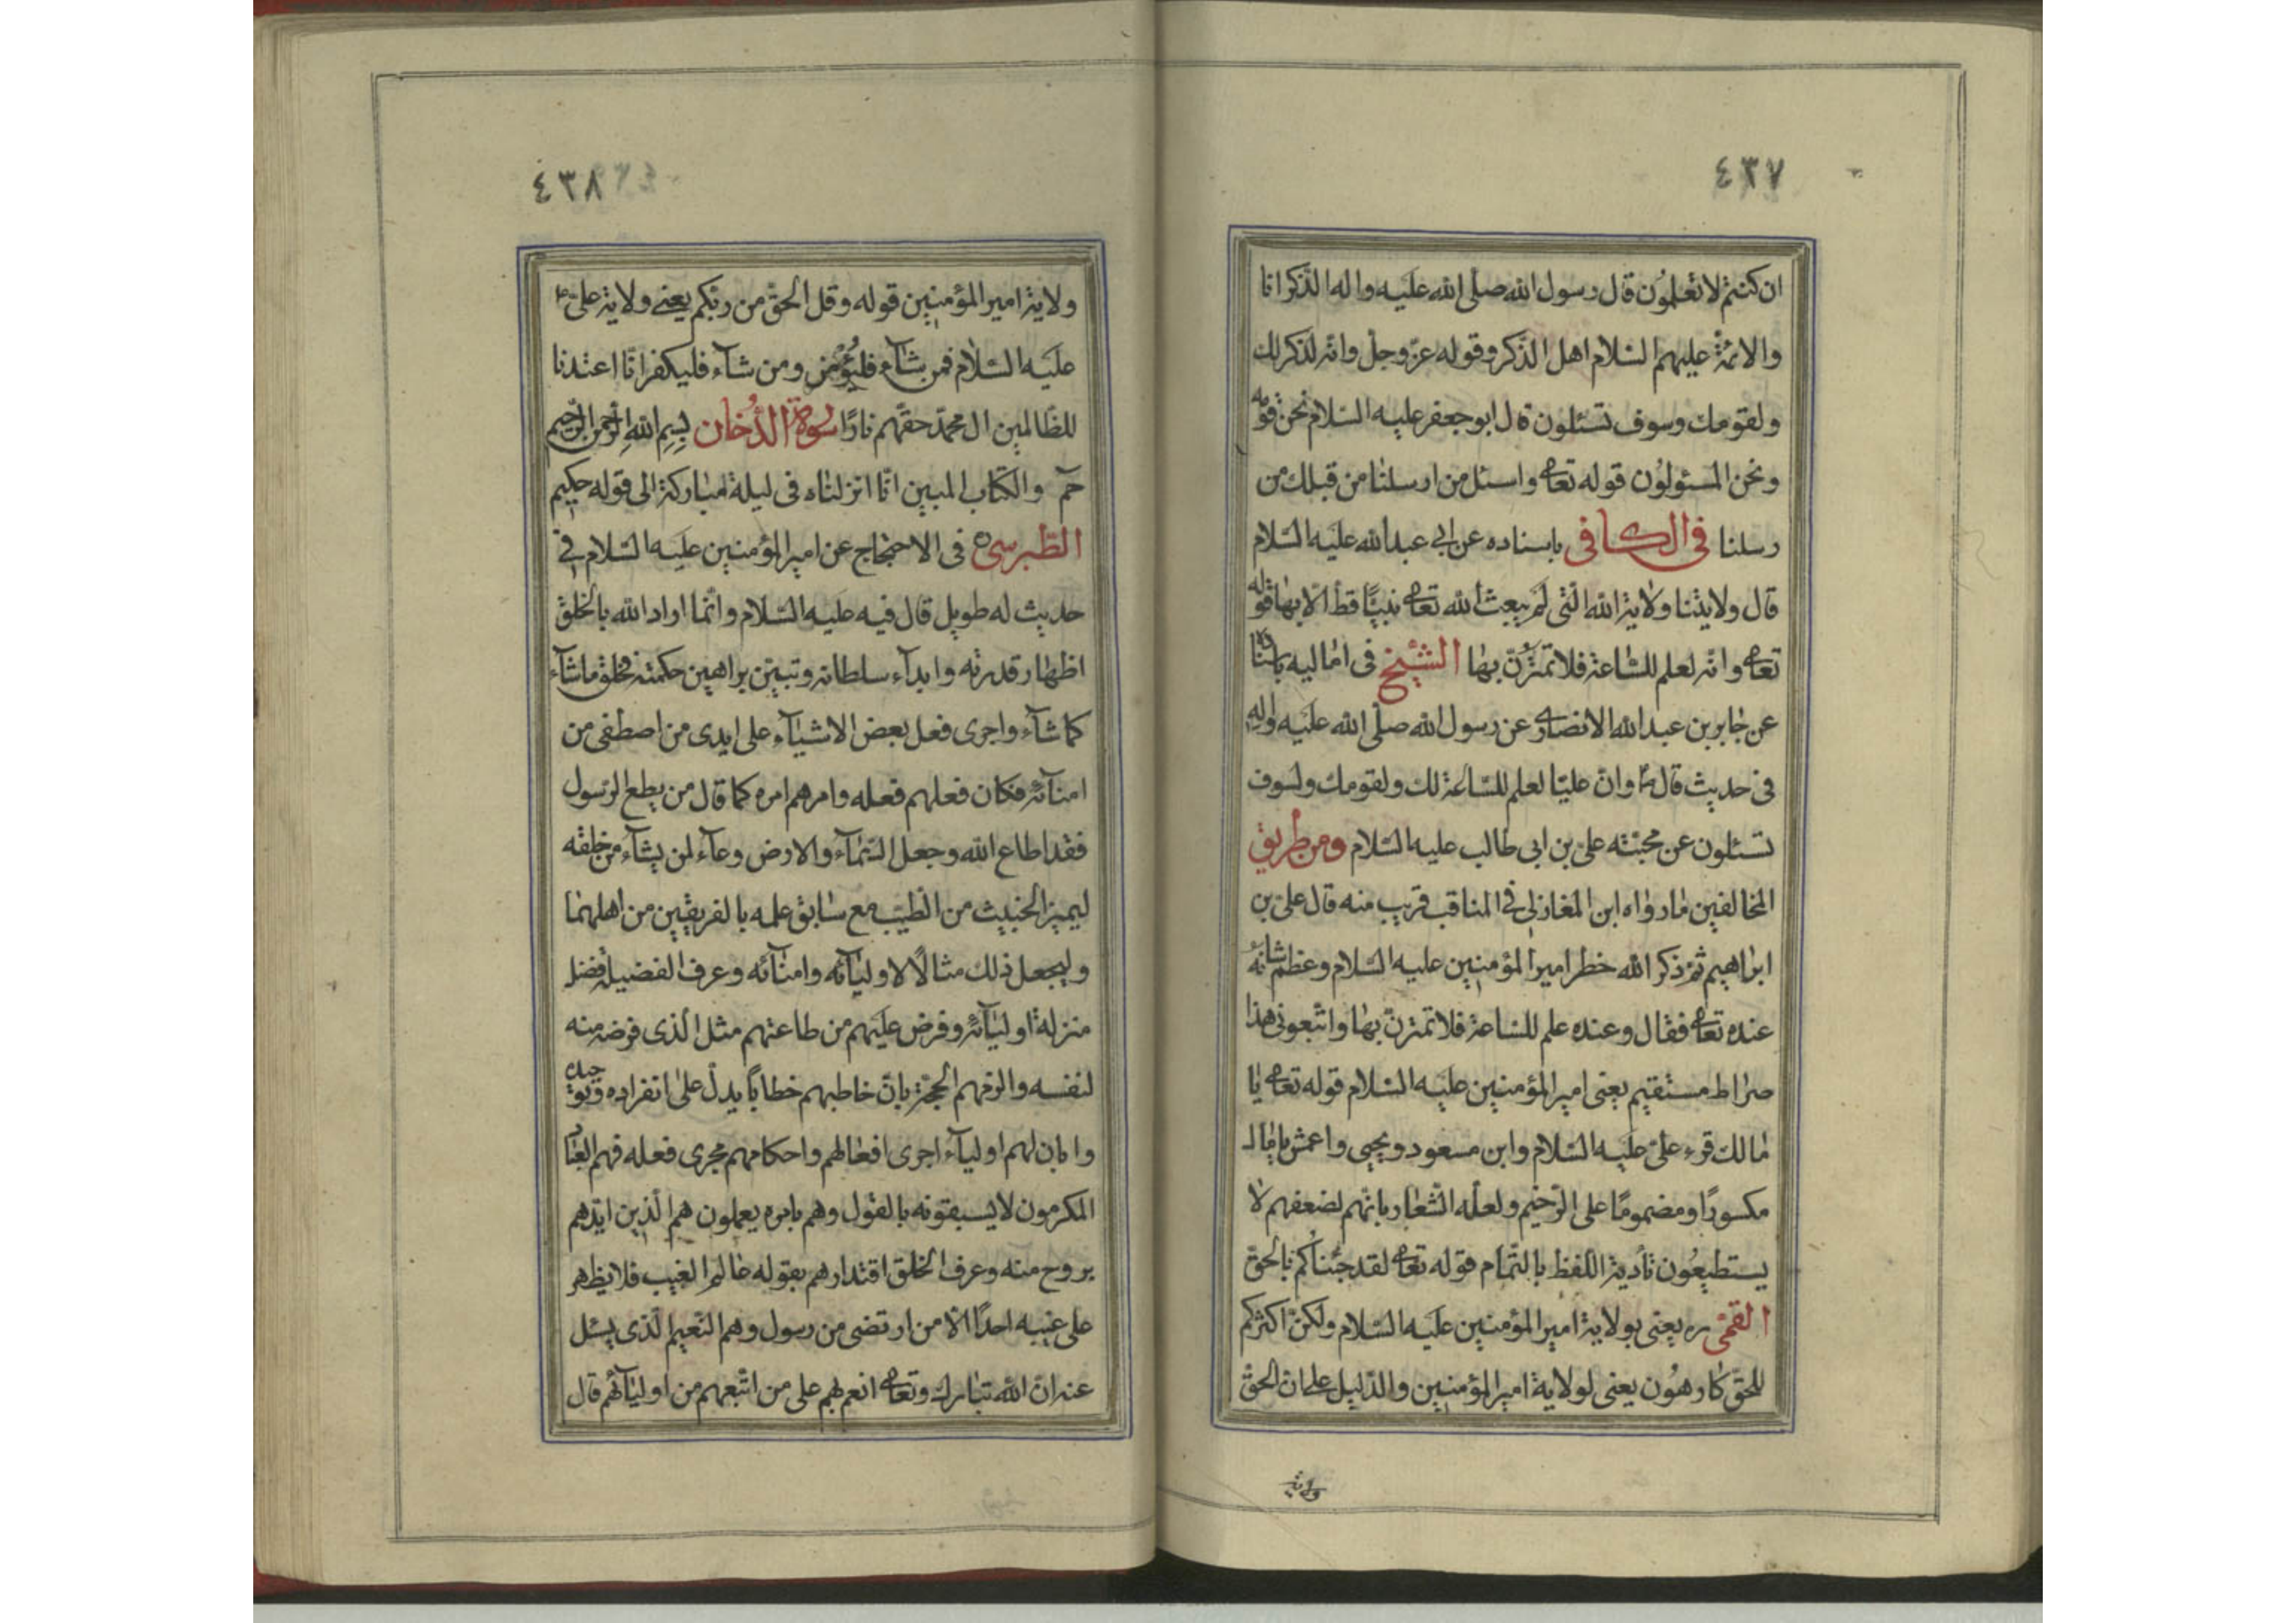 ٤٣٧
ان كنتم لا تعلمون قال رسول الله صلى الله عليه واله الذكر انا
والائمة عليهم السلام اهل الذكر وقوله عز وجل وانه لذكر لك
ولقومك وسوف تسئلون قال ابو جعفر عليه السلام نحن قومه
ونحن المسئولون قوله تعالى واسئل من ارسلنا من قبلك من
رسلنا فى الكافى باسناده عن ابى عبد الله عليه السلام
قال ولايتنا ولاية الله التى لم يبعث الله تعالى نبيا قط الا بها قوله
تعالى وانه لعلم للساعة فلا تمترن بها الشيخ فى اماليه باسناده
عن جابر بن عبد الله الانصارى عن رسول الله صلى الله عليه واله
فى حديث قال وان عليا لعلم للساعة لك ولقومك ولسوف
تسئلون عن محبته على بن ابى طالب عليه السلام ومن طريق
المخالفين ما رواه ابن المغازلى فى المناقب قريب منه قال على بن
ابراهيم ثم ذكر الله خطر امير المؤمنين عليه السلام وعظم شانه
عنده تعالى فقال وعنده علم للساعة فلا تمترن بها واتبعونى هذا
صراط مستقيم يعنى امير المؤمنين عليه السلام قوله تعالى يا
مالك قرء على عليه السلام وابن مسعود ويحيى واعمش يا مال
مكسورا ومضموما على الترخيم ولعله اشعار بانهم لضعفهم لا
يستطيعون تأدية اللفظ بالتمام قوله تعالى لقد جئناكم بالحق
القمى ره يعنى بولاية امير المؤمنين عليه السلام ولكن اكثركم
للحق كارهون يعنى لولاية امير المؤمنين والدليل على ان الحق
ولاية
٤٣٨
ولاية امير المؤمنين قوله وقل الحق من ربكم يعنى ولاية على
عليه السلام فمن شآء فليؤمن ومن شآء فليكفر انا اعتدنا
للظالمين ال محمد حقهم نارا سورة الدخان بسم الله الرحمن الرحيم
حم والكتاب المبين انا انزلناه فى ليلة مباركة الى قوله حكيم
الطبرسى ره فى الاحتجاج عن امير المؤمنين عليه السلام فى
حديث له طويل قال فيه عليه السلام وانما اراد الله بالخلق
اظهار قدرته وابدآء سلطانه وتبيين براهين حكمته فخلق ماشآء
كما شآء واجرى فعل بعض الاشيآء على ايدى من اصطفى من
امنآئه فكان فعلهم فعله وامرهم امره كما قال من يطع الرسول
فقد اطاع الله وجعل السمآء والارض وعآء لمن يشآء من خلقه
ليميز الخبيث من الطيب مع سابق علمه بالفريقين من اهلهما
وليجعل ذلك مثالا لاوليآئه وامنآئه وعرف الخليقة فضل
منزلة اوليآئه وفرض عليهم من طاعتهم مثل الذى فرضه منه
لنفسه والزمهم الحجة بان خاطبهم خطابا يدل على انفراده وتوحيده
وابان لهم اوليآء اجرى افعالهم واحكامهم مجرى فعله فهم العباد
المكرمون لا يسبقونه بالقول وهم بامره يعملون هم الذين ايدهم
بروح منه وعرف الخلق اقتدارهم بقوله عالم الغيب فلا يظهر
على غيبه احدا الا من ارتضى من رسول وهم النعيم الذى يسئل
عنه ان الله تبارك وتعالى انعم بهم على من اتبعهم من اوليآئهم قال